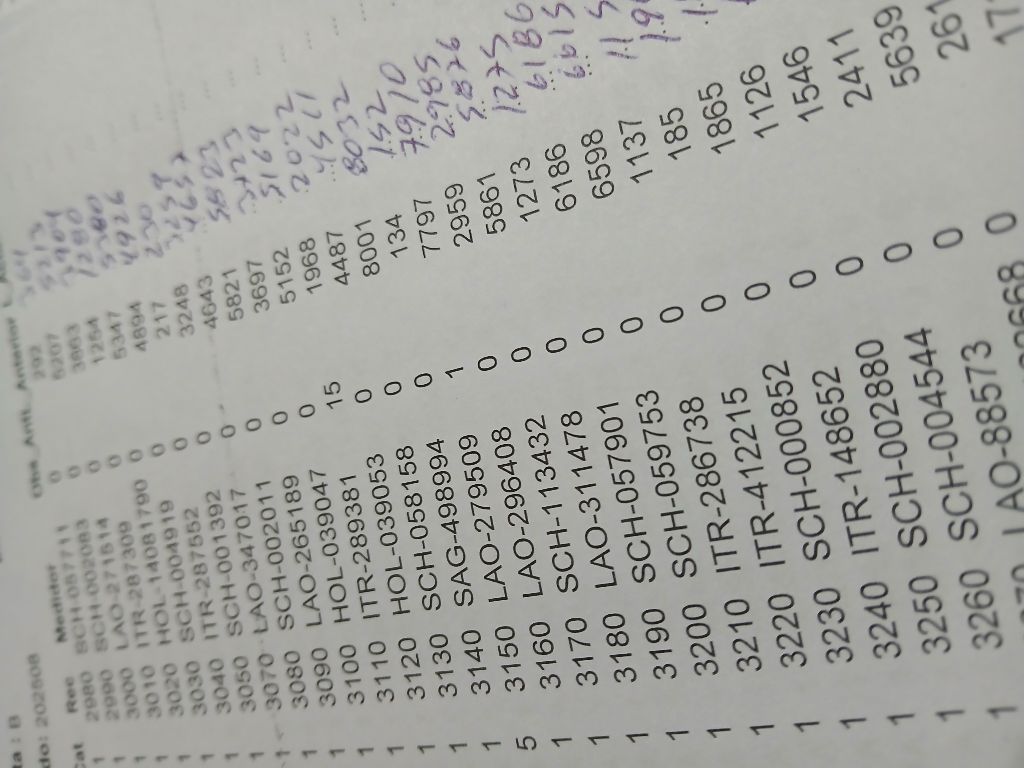 ta : B
do: 202608
Cat Rec Medidor Obs_Ant Anterior
1 2980 SCH-057711 0 292
1 2990 SCH-002083 0 5207 5213
1 3000 LAO-271514 0 3963 3984
1 3010 ITR-287309 0 1254 1280
1 3020 HOL-14081790 0 5347 5360
1 3030 SCH-004919 0 4894 4926
1 3040 ITR-287552 0 217 230
1 3050 SCH-001392 0 3248 3259
1 3070 LAO-347017 0 4643 4657
1 3080 SCH-002011 0 5821 5823
1 3090 LAO-265189 0 3697 3723
1 3100 HOL-039047 0 5152 5169
1 3110 ITR-289381 15 1968 2022
1 3120 HOL-039053 0 4487 4511
1 3130 SCH-058158 0 8001 8032
1 3140 SAG-498994 0 134 152
5 3150 LAO-279509 1 7797 7910
1 3160 LAO-296408 0 2959 2985
1 3170 SCH-113432 0 5861 5876
1 3180 LAO-311478 0 1273 1275
1 3190 SCH-057901 0 6186 6186
1 3200 SCH-059753 0 6598 6615
1 3210 ITR-286738 0 1137
1 3220 ITR-412215 0 185
1 3230 SCH-000852 0 1865
1 3240 ITR-148652 0 1126
1 3250 SCH-002880 0 1546
1 3260 SCH-004544 0 2411
LAO-88573 0 5639
0 261
17